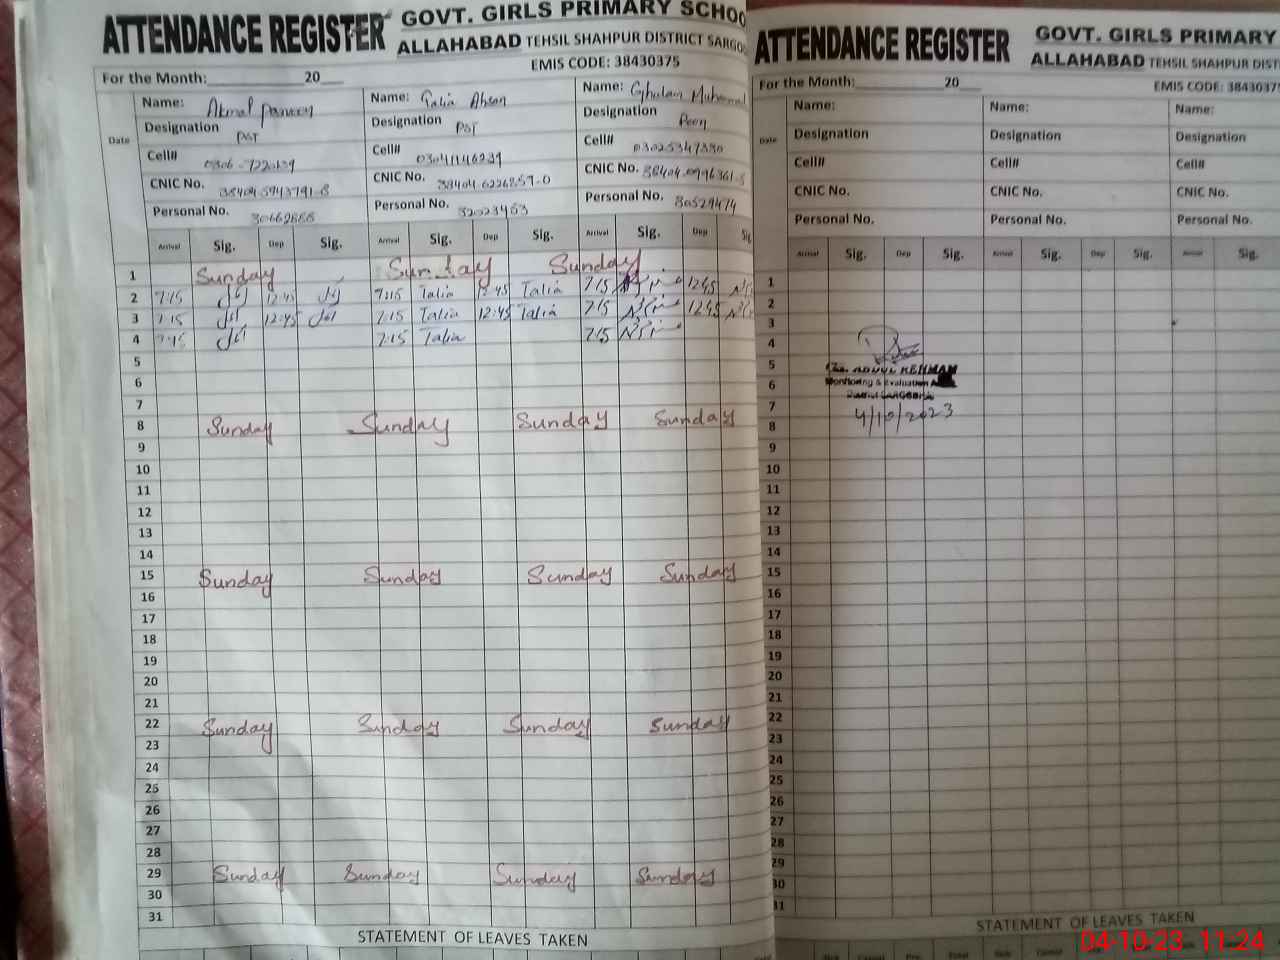 ATTENDANCE REGISTER GOVT. GIRLS PRIMARY SCHOO
ALLAHABAD TEHSIL SHAHPUR DISTRICT SARGO
EMIS CODE: 38430375
For the Month: 20
Date
Name: Akmal Parveen Name: Talia Ahsan Name: Ghulam Muhammad
Designation PST Designation PST Designation Peon
Cell# Cell# 03041146239 Cell# 03025347380
CNIC No. CNIC No. CNIC No.
Personal No. Personal No. 32023453 Personal No. 30529474
Arrival Sig. Dep Sig. Arrival Sig. Dep Sig. Arrival Sig. Dep Sig
1 Sunday Sunday Sunday
2 7:15 12:45 7:15 Talia 12:45 Talia 7:15 12:45
3 7:15 12:45 7:15 Talia 12:45 Talia 7:15 12:45
4 7:15 7:15 Talia 7:15
5
6
7
8 Sunday Sunday Sunday Sunday
9
10
11
12
13
14
15 Sunday Sunday Sunday Sunday
16
17
18
19
20
21
22 Sunday Sunday Sunday Sunday
23
24
25
26
27
28
29 Sunday Sunday Sunday Sunday
30
31
STATEMENT OF LEAVES TAKEN
ATTENDANCE REGISTER GOVT. GIRLS PRIMARY
ALLAHABAD TEHSIL SHAHPUR DIST
For the Month: 20 EMIS CODE: 38430375
Date
Name: Name: Name:
Designation Designation Designation
Cell# Cell# Cell#
CNIC No. CNIC No. CNIC No.
Personal No. Personal No. Personal No.
Arrival Sig. Dep Sig. Arrival Sig. Dep Sig. Arrival Sig.
1
2
3
4
5 ABDUL REHMAN
6 Monitoring & Evaluation
District SARGODHA
7 4/10/2023
8
9
10
11
12
13
14
15
16
17
18
19
20
21
22
23
24
25
26
27
28
29
30
31
STATEMENT OF LEAVES TAKEN
04-10-23 11:24